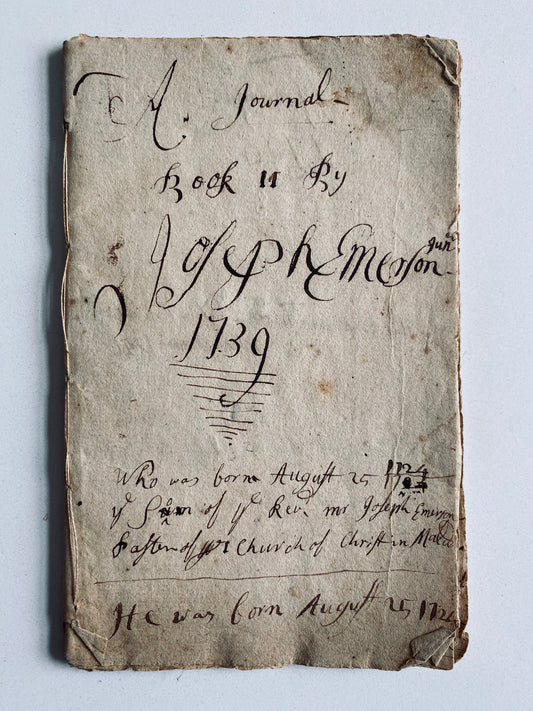 A. Journal
Book II By
Joseph Emerson Junr
1739
Who was born August 25 1724
ye Son of ye Revd mr Joseph Emerson
Paster of ye 1 Church of Christ in Malde
He was born August 25 172